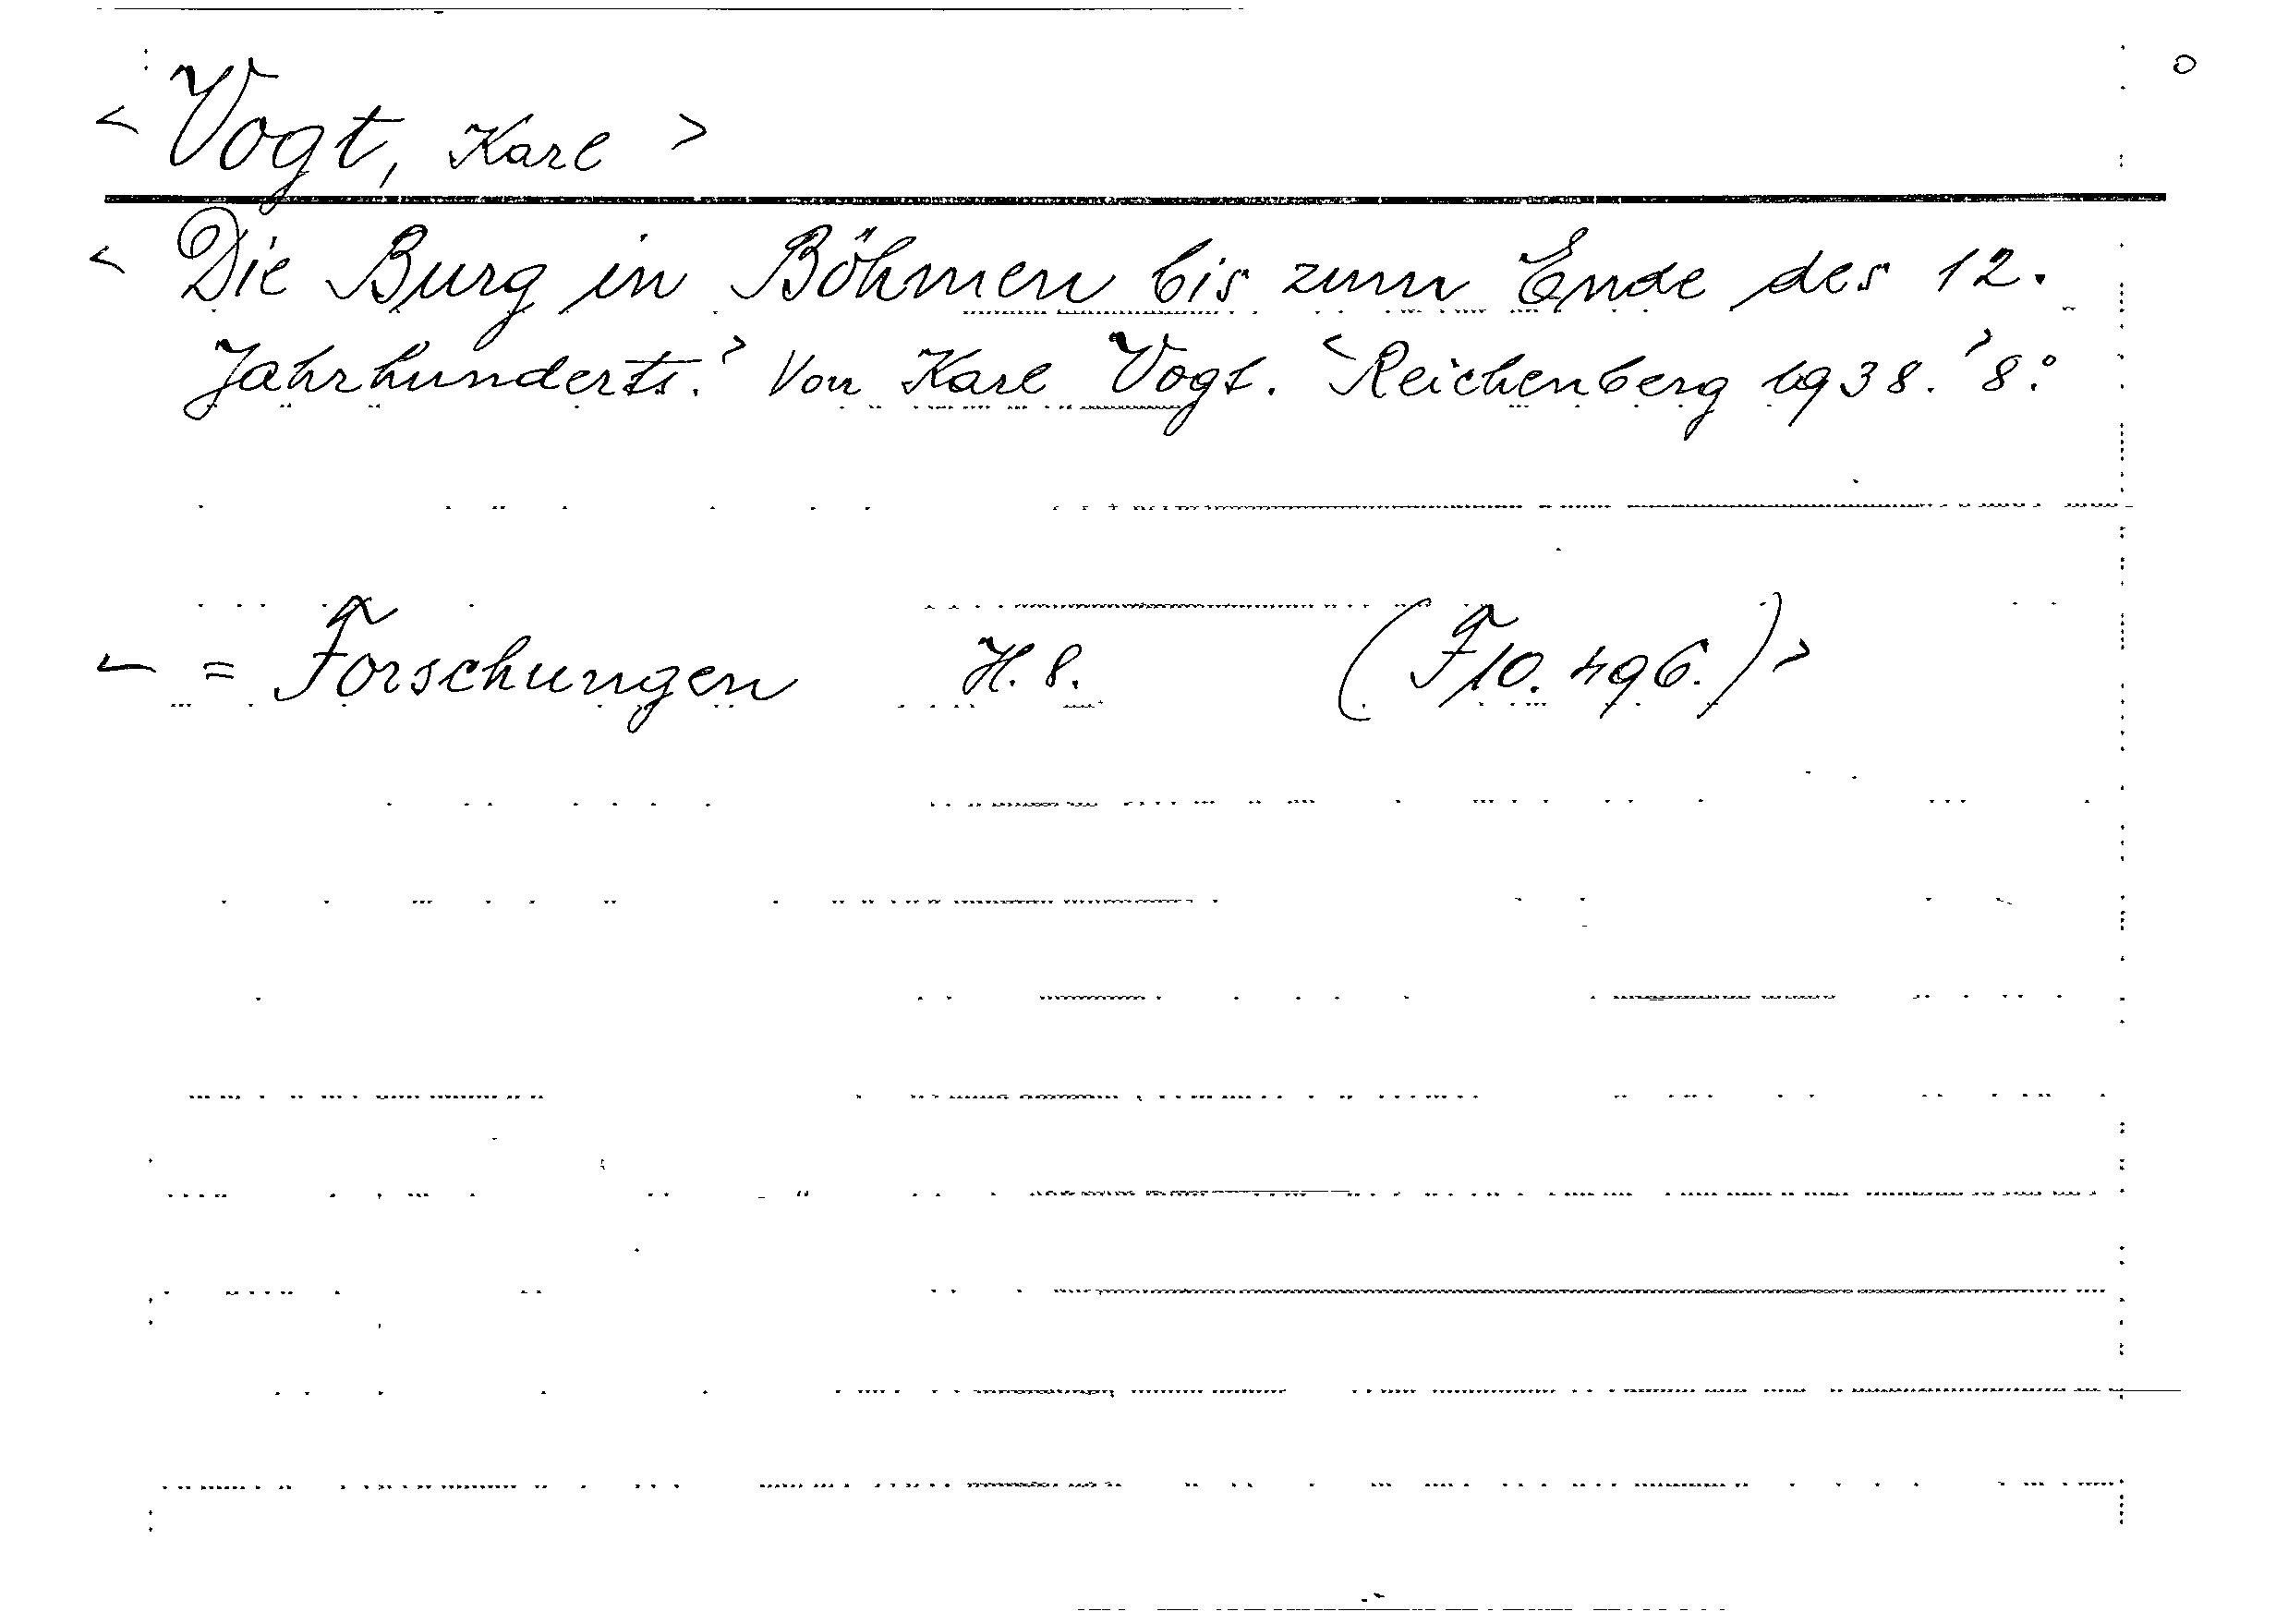 < Vogt, Karl >
< Die Burg in Böhmen bis zum Ende des 12.
Jahrhunderts.> Von Karl Vogt. <Reichenberg 1938.> 8°.
< = Forschungen H. 8. (F 10. 496.) >